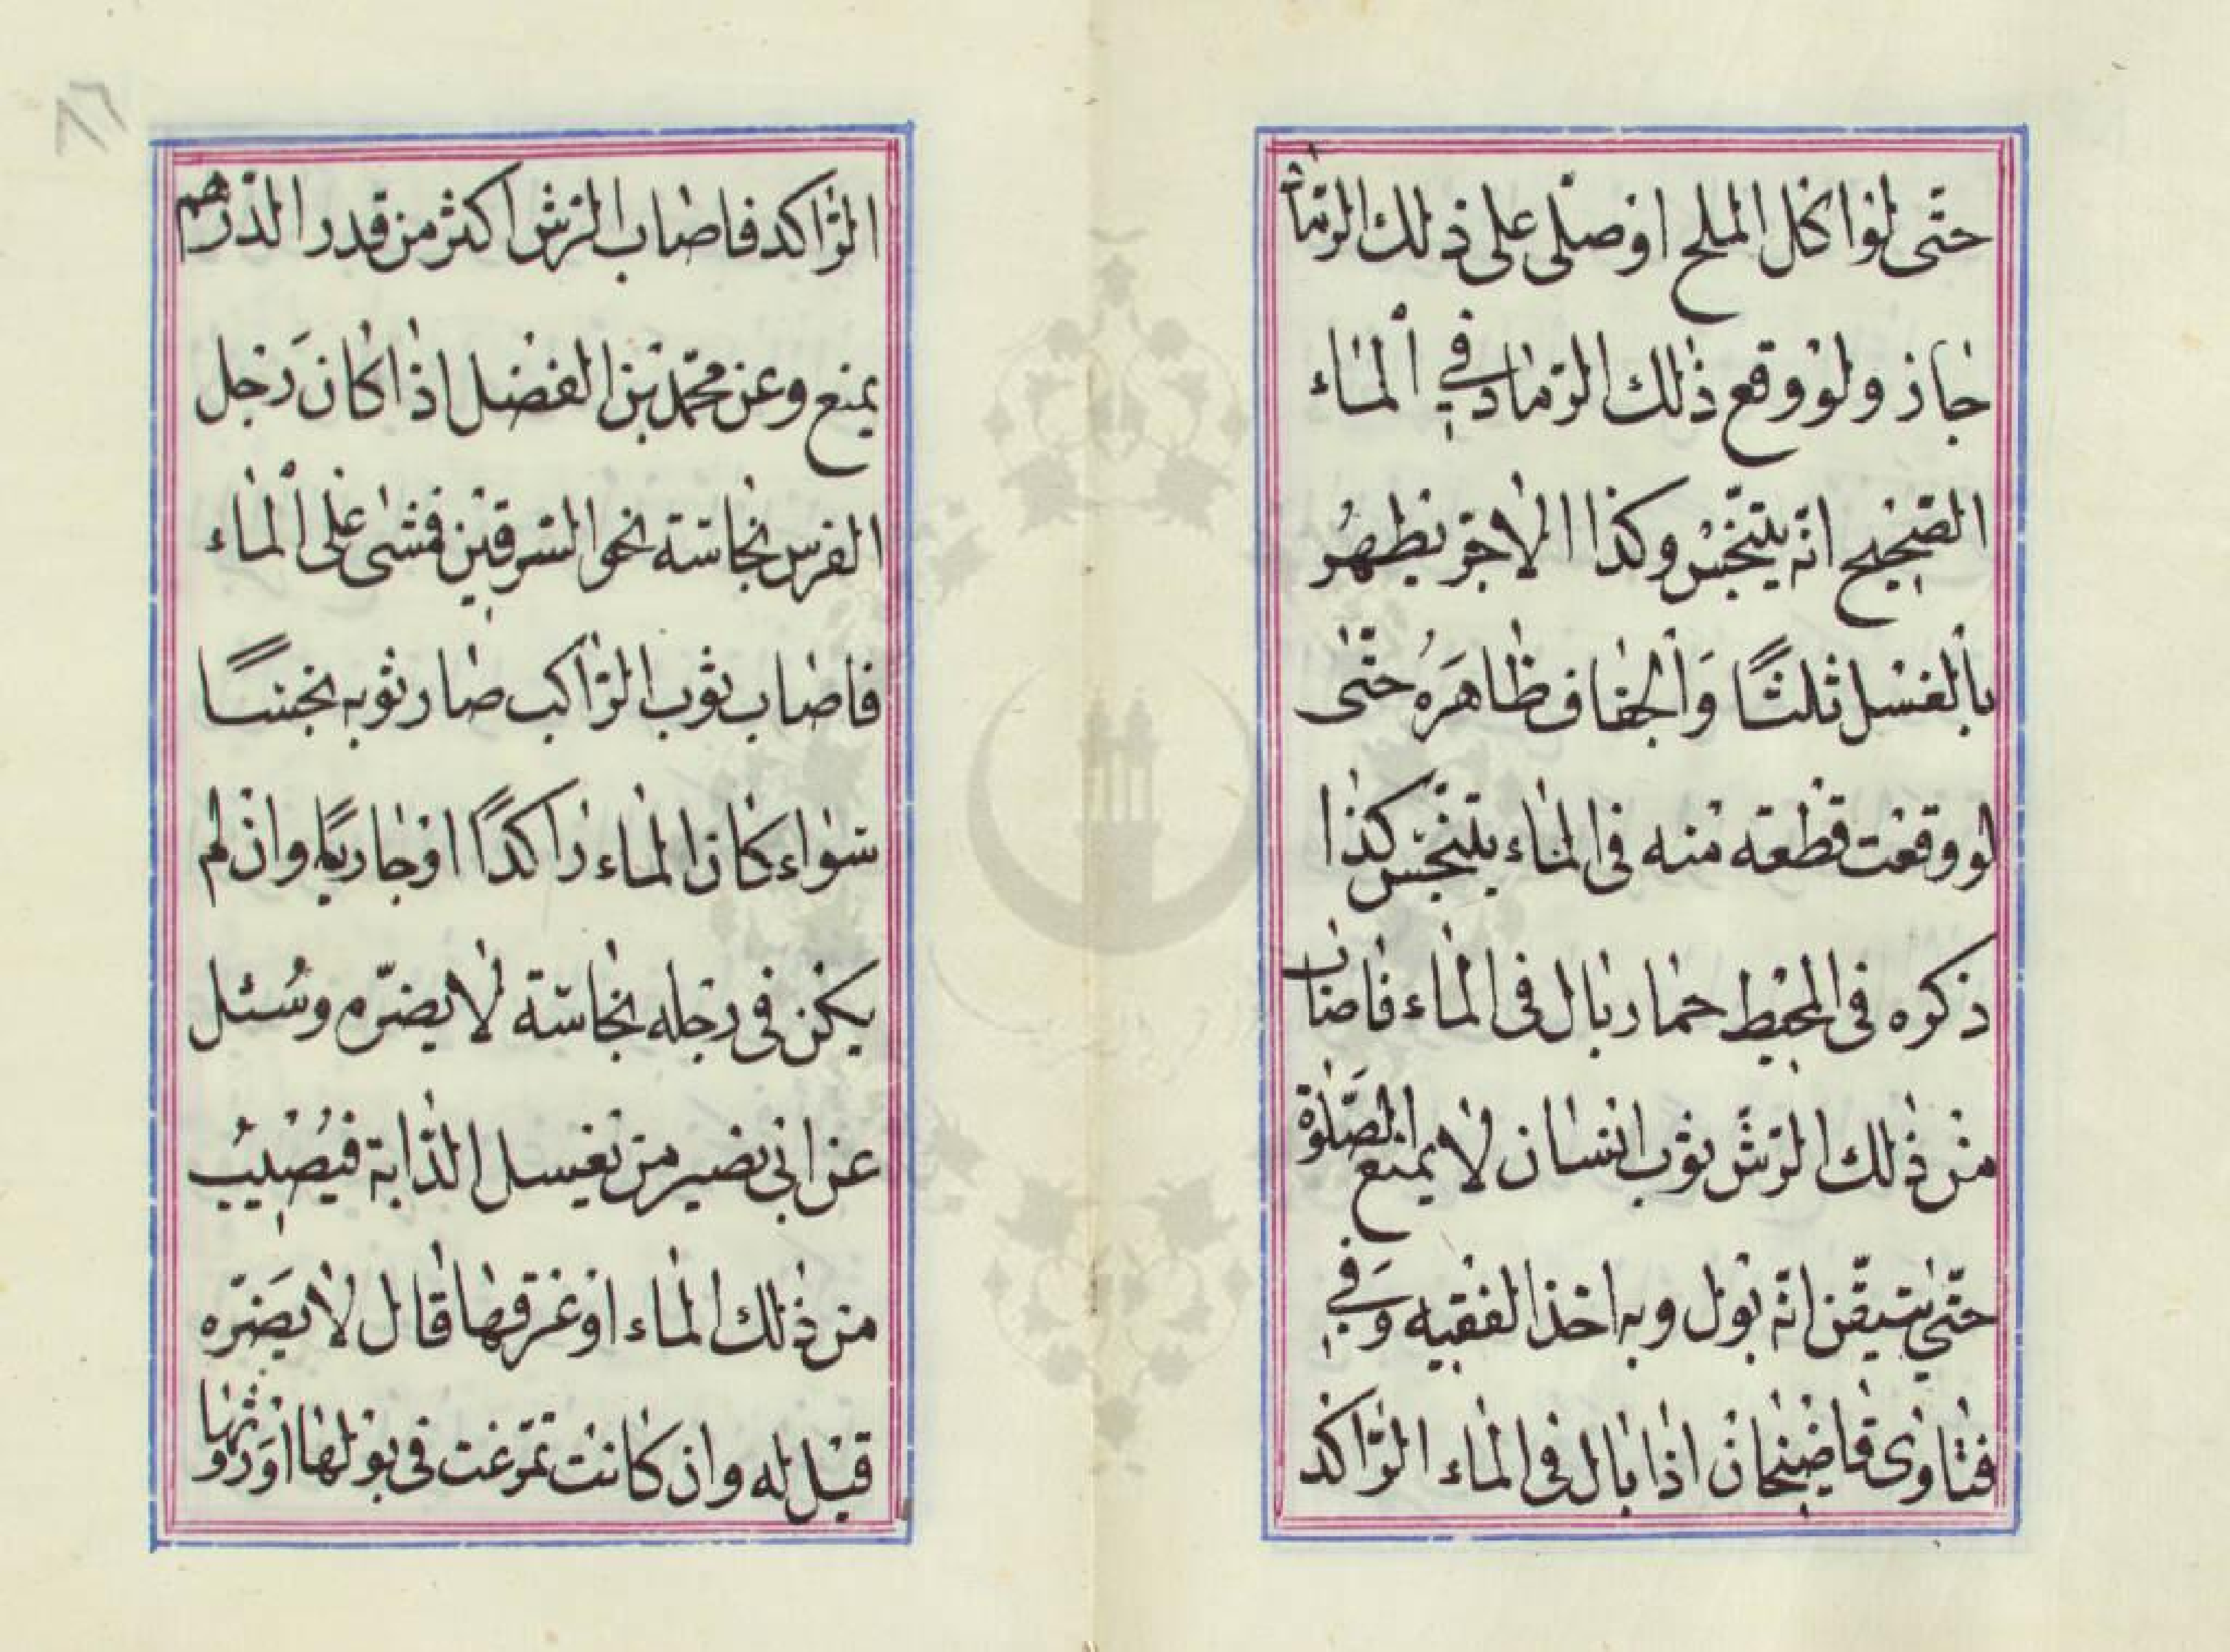 حتّى لو اكل الملح او صلّى على ذلك الرّماد
جاز ولو وقع ذلك الرّماد في الماء
الصّحيح انّه يتنجّس وكذا الاجر يطهر
بالغسل ثلثًا والجفاف ظاهره حتّى
لو وقعت قطعة منه فى الماء يتنجّس كذا
ذكره فى المحيط حمار بال فى الماء فاصاب
من ذلك الرّشّ ثوب انسان لا يمنع الصّلوة
حتّى يتيقّن انّه بول وبه اخذ الفقيه وفي
فتاوى قاضيخان اذا بال فى الماء الرّاكد
٨٦
الرّاكد فاصاب الرّش اكثر من قدر الدّرهم
يمنع وعن محمّد بن الفضل اذا كان رجل
الفرس نجاسة نحو السّرقين فمشى على الماء
فاصاب ثوب الرّاكب صار ثوبه نجسًا
سواء كان الماء راكدًا او جاريًا وان لم
يكن فى رجله نجاسة لا يضرّه وسئل
عن ابى نصير من يغسل الدّابة فيُصيب
من ذلك الماء او عرقها قال لا يضرّه
قيل له وان كانت تمرّغت فى بولها او روثها